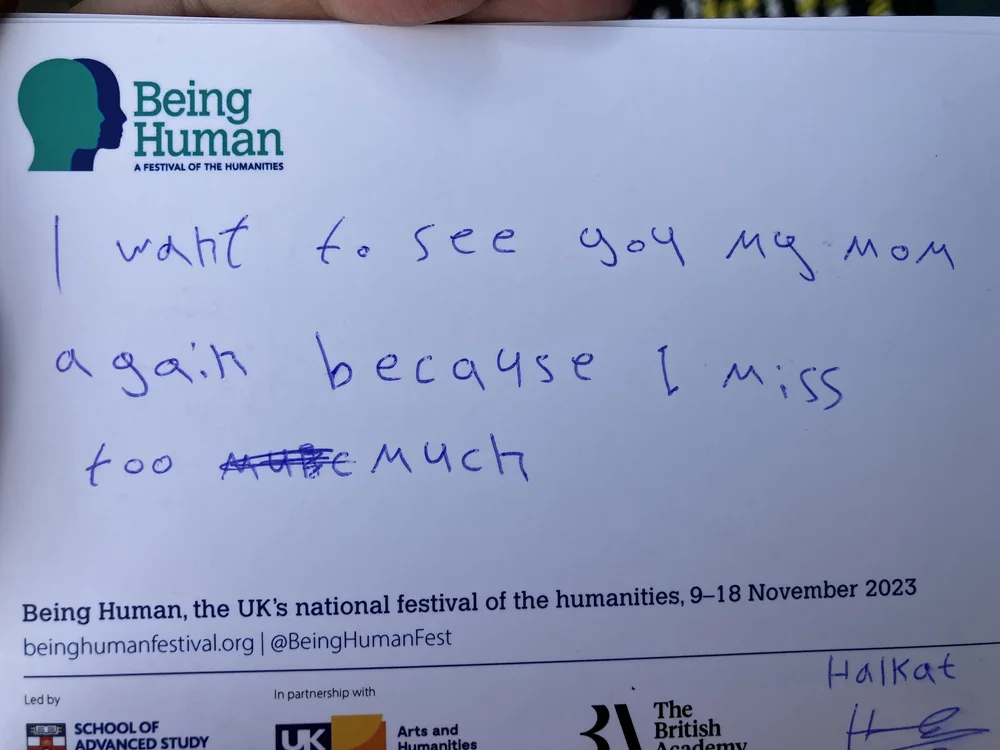 Being
Human
A FESTIVAL OF THE HUMANITIES
I want to see you my mom
again because I miss
too much
Being Human, the UK's national festival of the humanities, 9–18 November 2023
beinghumanfestival.org | @BeingHumanFest
Halkat
Led by
In partnership with
SCHOOL OF
ADVANCED STUDY
UK
Arts and
Humanities
The
British
Academy